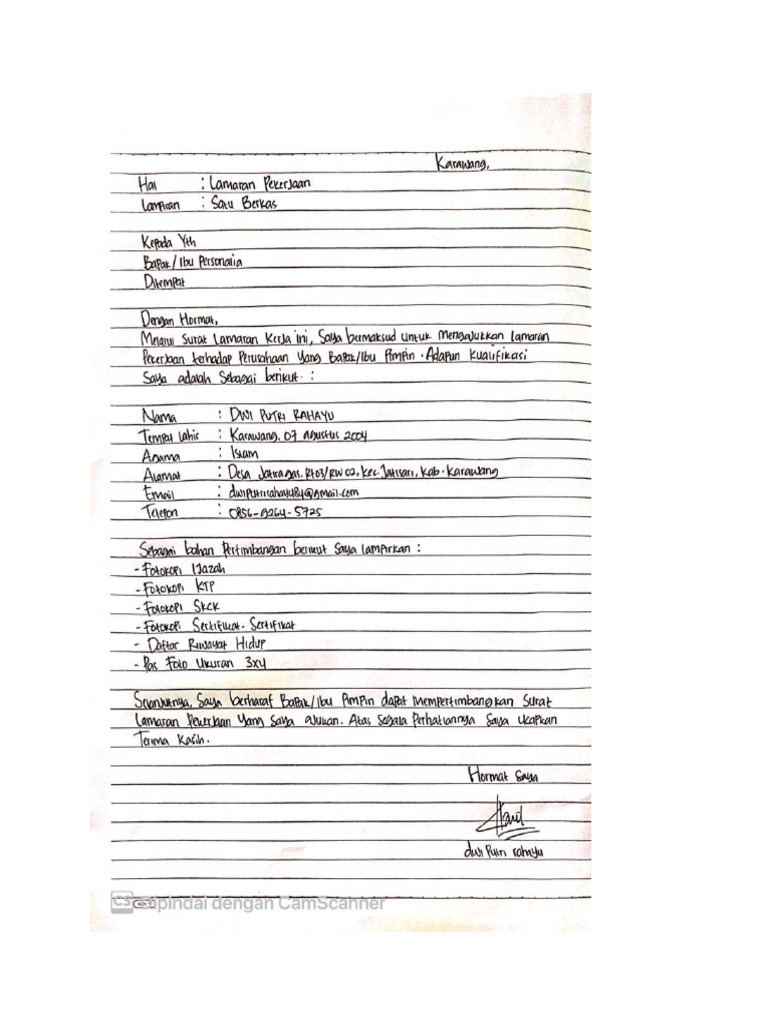 Karawang,
Hal : Lamaran Pekerjaan
Lampiran : Satu Berkas
Kepada Yth
Bapak/Ibu Personalia
Ditempat
Dengan Hormat,
Melalui Surat Lamaran Kerja ini, Saya bermaksud untuk mengajukkan lamaran
Pekerjaan terhadap Perusahaan yang Bapak/Ibu Pimpin. Adapun kualifikasi
Saya adalah Sebagai berikut. :
Nama : DWI PUTRI RAHAYU
Tempat Lahir : Karawang, 07 Agustus 2004
Agama : Islam
Alamat : Desa Jatiragas. Rt03/RW02, Kec Jatisari, Kab. Karawang
Email : dwiputrirahayu84@gmail.com
Telefon : 0856-9264-5725
Sebagai bahan Pertimbangan berikut Saya lampirkan :
- Fotokopi Ijazah
- Fotokopi KTP
- Fotokopi SKCK
- Fotokopi Sertifikat-Sertifikat
- Daftar Riwayat Hidup
- Pas Foto Ukuran 3x4
Selanjutnya, Saya berharaf Bapak/Ibu Pimpin dapat mempertimbangkan Surat
Lamaran Pekerjaan yang Saya ajukan. Atas Segala Perhatiannya Saya Ucapkan
Terima Kasih.
Hormat Saya
dwi Putri rahayu
CS pindai dengan CamScanner